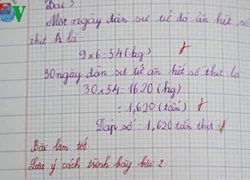 Bài 3
Một ngày đàn sư tử đó ăn hết số
thịt là
9 x 6 = 54 (kg)
30 ngày đàn sư tử ăn hết số thịt là
30 x 54 = 1620 (kg)
= 1,620 (tấn)
Đáp số: 1,620 tấn thịt
Bài làm tốt
Lưu ý cách trình bày bài 2